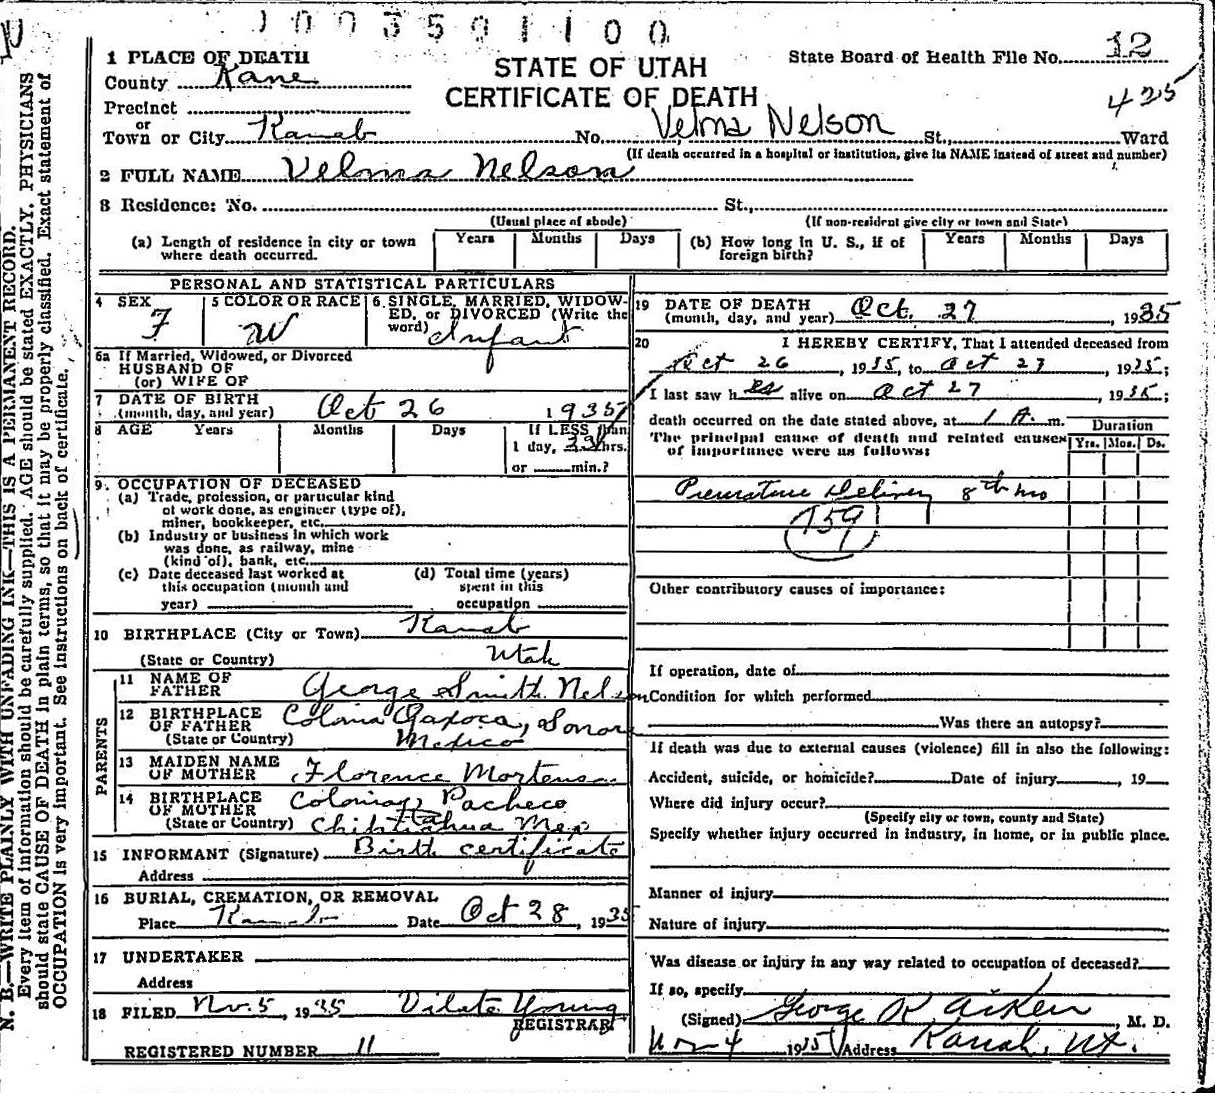 1003501100
1 PLACE OF DEATH
STATE OF UTAH
State Board of Health File No. 12
County Kane
CERTIFICATE OF DEATH
425
Precinct
or
Town or City Kanab No. Velma Nelson St., Ward
(If death occurred in a hospital or institution, give its NAME instead of street and number)
2 FULL NAME Velma Nelson
3 Residence: No. St.,
(Usual place of abode) (If non-resident give city or town and State)
(a) Length of residence in city or town where death occurred. Years Months Days (b) How long in U. S., if of foreign birth? Years Months Days
PERSONAL AND STATISTICAL PARTICULARS
4 SEX F
5 COLOR OR RACE W
6 SINGLE, MARRIED, WIDOW-
ED, or DIVORCED (Write the
word) Infant
6a If Married, Widowed, or Divorced
HUSBAND OF
(or) WIFE OF
7 DATE OF BIRTH
(month, day, and year) Oct 26 1935
8 AGE Years Months Days If LESS than
1 day, 23 hrs.
or min.?
9. OCCUPATION OF DECEASED
(a) Trade, profession, or particular kind
of work done, as engineer (type of),
miner, bookkeeper, etc.
(b) Industry or business in which work
was done, as railway, mine
(kind of), bank, etc.
(c) Date deceased last worked at
this occupation (month and
year)
(d) Total time (years)
spent in this
occupation
10 BIRTHPLACE (City or Town) Kanab
(State or Country) Utah
PARENTS
11 NAME OF
FATHER George Smith Nelson
12 BIRTHPLACE
OF FATHER Colonia Oaxoca, Sonora
(State or Country) Mexico
13 MAIDEN NAME
OF MOTHER Florence Mortensen
14 BIRTHPLACE
OF MOTHER Colonia Pacheco
(State or Country) Chihuahua Mex
15 INFORMANT (Signature) Birth certificate
Address
16 BURIAL, CREMATION, OR REMOVAL
Place Kanab Date Oct 28, 1935
17 UNDERTAKER
Address
18 FILED Nov. 5, 1935 Vilate Young
REGISTRAR
REGISTERED NUMBER 11
19 DATE OF DEATH
(month, day, and year) Oct. 27, 1935
20 I HEREBY CERTIFY, That I attended deceased from
Oct 26, 1935, to Oct 27, 1935;
I last saw h er alive on Oct 27, 1935;
death occurred on the date stated above, at 1 A. m.
The principal cause of death and related causes
of importance were as follows:
Duration
Yrs. Mos. Ds.
Premature Delivery 8th mo
159
Other contributory causes of importance:
If operation, date of
Condition for which performed
Was there an autopsy?
If death was due to external causes (violence) fill in also the following:
Accident, suicide, or homicide? Date of injury , 19
Where did injury occur?
(Specify city or town, county and State)
Specify whether injury occurred in industry, in home, or in public place.
Manner of injury
Nature of injury
Was disease or injury in any way related to occupation of deceased?
If so, specify
(Signed) George R. Aiken, M. D.
Nov 4 1935 Address Kanab, Ut.
N. B.—WRITE PLAINLY WITH UNFADING INK—THIS IS A PERMANENT RECORD.
Every item of information should be carefully supplied. AGE should be stated EXACTLY. PHYSICIANS
should state CAUSE OF DEATH in plain terms, so that it may be properly classified. Exact statement of
OCCUPATION is very important. See instructions on back of certificate.